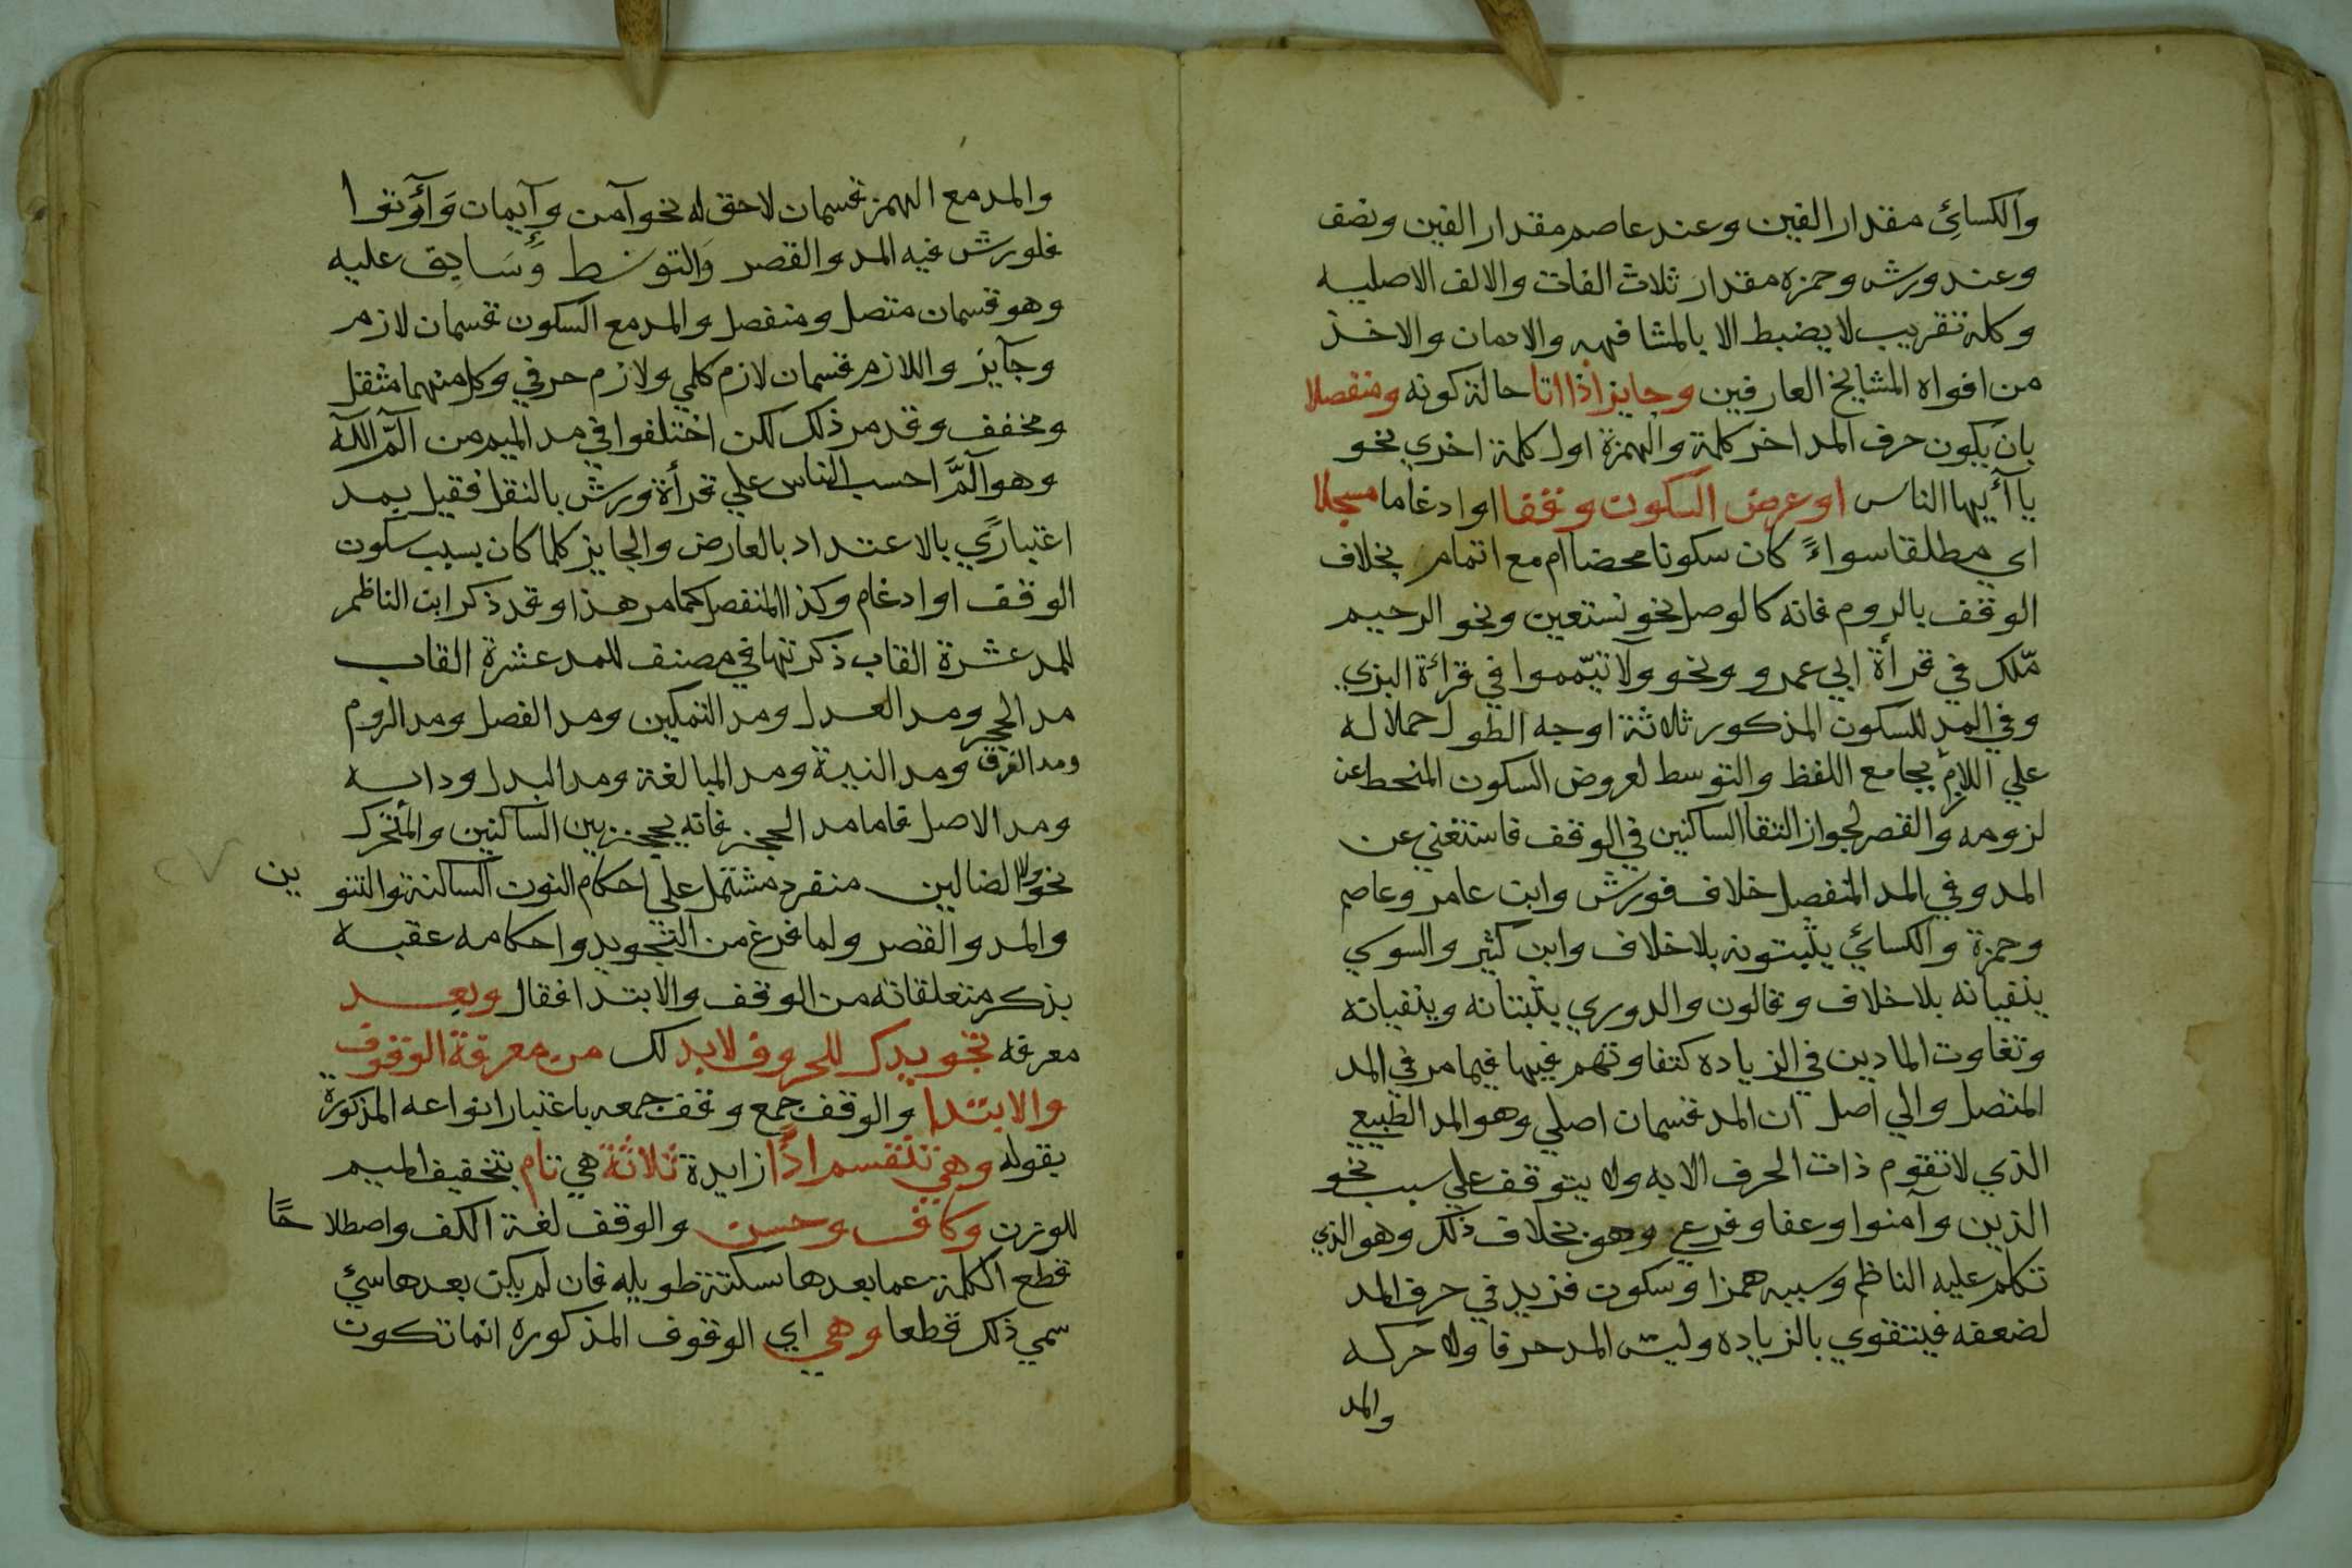 والكسائي مقدار الفين وعند عاصم مقدار الفين ونصف
وعند ورش وحمزه مقدار ثلاث الفات والالف الاصليه
وكله تقريب لا يضبط الا بالمشافهه والادمان والاخذ
من افواه المشايخ العارفين وجايز اذا اتا حالة كونه ومنفصلا
بان يكون حرف المد اخر كلمة والهمزة اول كلمة اخري نحو
يآأيها الناس او عرض السكون وقفا اوادغاما مسجلا
اي مطلقا سواءً كان سكونا محضا ام مع اتمام بخلاف
الوقف بالروم فانه كالوصل نحو نستعين ونحو الرحيم
مّلك في قرأة ابي عمرو ونحو ولا تيّمموا في قرائة البزي
وفي المد للسكون المذكور ثلاثة اوجه الطول حملا له
علي اللازم بجامع اللفظ والتوسط لعروض السكون المنحط عن
لزومه والقصر لجواز التقا الساكنين في الوقف فاستغني عن
المد وفي المد المنفصل خلاف فورش وابن عامر وعاصم
وحمزة والكسائي يثبتونه بلا خلاف وابن كثير والسوسي
ينفيانه بلا خلاف وقالون والدوري يثبتانه وينفيانه
وتفاوت المادين في الزياده كتفاوتهم فيها فيما مر في المد
المتصل والي اصل ان المد قسمان اصلي وهو المد الطبيعي
الذي لا تقوم ذات الحرف الا به ولا يتوقف علي سبب نحو
الذين وآمنوا وعفا وفرعي وهو بخلاف ذلك وهو الذي
تكلم عليه الناظم وسببه همز او سكون فزيد في حرف المد
لضعفه فيتقوي بالزياده وليس المد حرفا ولا حركه
والمد
والمد مع الهمز قسمان لاحق له نحو آمن وآيمان وَآوُتوا
فلورش فيه المد والقصر والتوسط وَسَابق عليه
وهو قسمان متصل ومنفصل والمد مع السكون قسمان لازم
وجآيز واللازم قسمان لازم كلمي ولازم حرفي وكل منهما مثقل
ومخفف وقد مر ذلك لكن اختلفوا في مد الميم من الٓمّ اللّه
وهو الٓمّ احسب الناس علي قرأة ورش بالنقل فقيل يمد
اعتباري بالاعتداد بالعارض والجايز كلما كان بسبب سكون
الوقف او ادغام وكذا المنفصل كما مر هذا وقد ذكر ابن الناظم
للمد عشرة القاب ذكرتها في مصنف للمد عشرة القاب
مد الحجز ومد العدل ومد التمكين ومد الفصل ومد الروم
ومد الفرق ومد النبية ومد المبالغة ومد البدل ودابه
ومد الاصل فاما مد الحجز فانه يحجز بين الساكنين والمتحرك
نحو ولا الضالين منفرد مشتمل علي احكام النون الساكنة والتنوين
والمد والقصر ولما فرغ من التجويد واحكامه عقبه
بذكر متعلقاته من الوقف والابتدا فقال وبعد
معرفه تجويدك للحروف لابد لك من معرفة الوقوف
والابتدا والوقف جمع وقف جمعه باعتبار انواعه المذكورة
بقوله وهي تنقسم اذًا زايدة ثلاثة هي تام بتخفيف الميم
للوزن وكاف وحسن والوقف لغة الكف واصطلاحًا
قطع الكلمة عما بعدها سكتة طويله فان لم يكن بعدها شئ
سمي ذلك قطعا وهي اي الوقوف المذكوره انما تكون